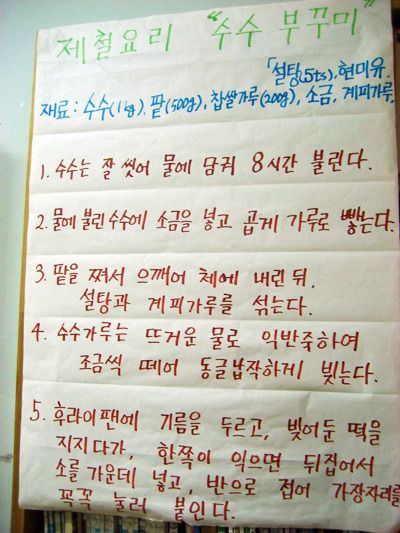 제철요리 "수수 부꾸미"
「설탕(5ts), 현미유.
재료 : 수수(1kg). 팥(500g), 찹쌀가루(200g), 소금, 계피가루,
1. 수수는 잘 씻어 물에 담궈 8시간 불린다.
2. 물에 불린 수수에 소금을 넣고 곱게 가루로 빻는다.
3. 팥을 쪄서 으깨어 체에 내린 뒤,
설탕과 계피가루를 섞는다.
4. 수수가루는 뜨거운 물로 익반죽하여
조금씩 떼어 동글납작하게 빚는다.
5. 후라이팬에 기름을 두르고, 빚어둔 떡을
지지다가, 한쪽이 익으면 뒤집어서
소를 가운데 넣고, 반으로 접어 가장자리를
꼭꼭 눌러 붙인다.